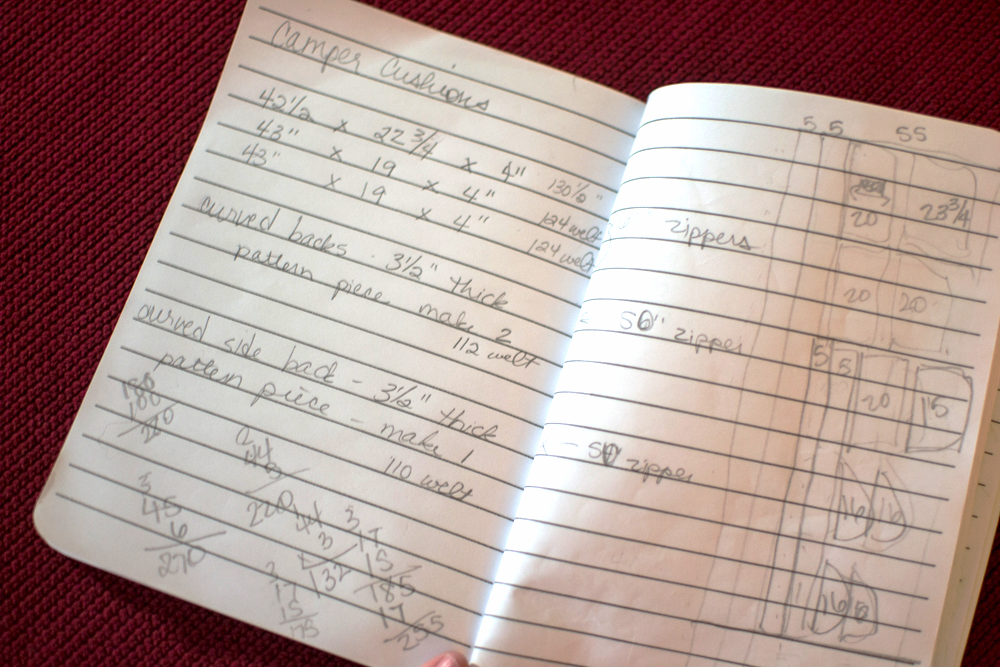 Camper Cushions
42 1/2 x 22 3/4 x 4" 130 1/2"
43" x 19 x 4" 124 welt
43" x 19 x 4" 124 welt
curved backs - 3 1/2" thick
pattern piece make 2
112 welt
curved side back - 3 1/2" thick
pattern piece - make 1
110 welt
180
220
3
45
6
270
132
2
17
15
3
17
15
185
17
255
5 5 55
20 23 3/4
zippers
20 20
zipper
5 5
20 15
zipper
16 16